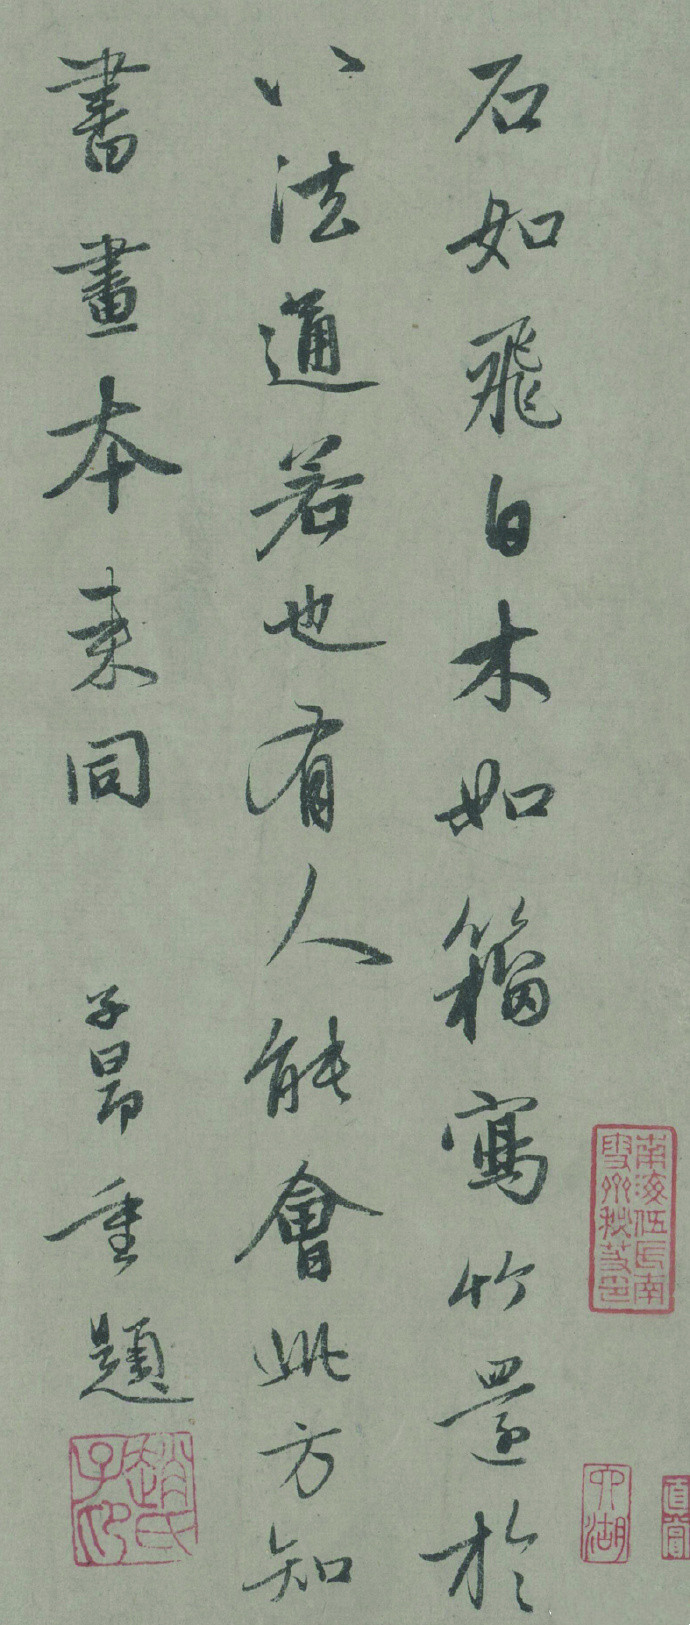 石如飛白木如籀寫竹還於
八法通若也有人能會此方知
書畫本来同
子昂重題
趙氏子印
南海伍氏南雪齋秘笈印